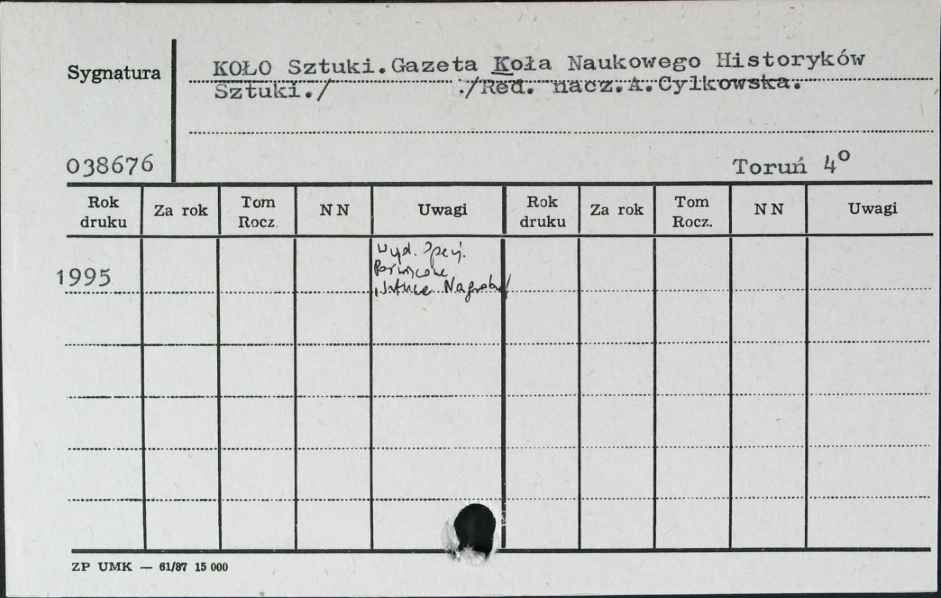 Sygnatura
KOŁO Sztuki.Gazeta Koła Naukowego Historyków
Sztuki./ :/Red. nacz.A.Cylkowska.
038676
Toruń 4º
Rok druku Za rok Tom Rocz NN Uwagi Rok druku Za rok Tom Rocz. NN Uwagi
1995
Wyd. Specj.
Poświęcone
ZP UMK — 61/87 15 000